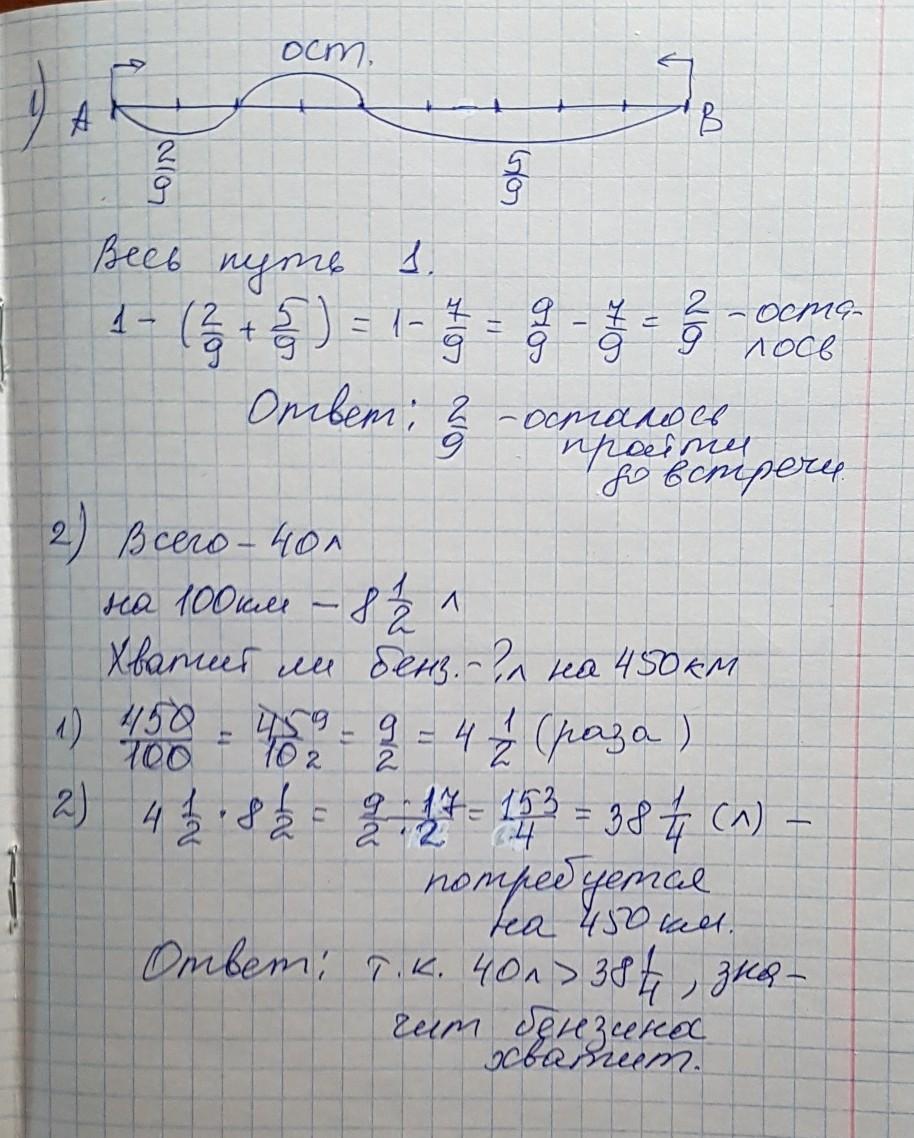 1)
ост.
А В
2/9 5/9
Весь путь 1.
1 - (2/9 + 5/9) = 1 - 7/9 = 9/9 - 7/9 = 2/9 - оста-
лось
Ответ: 2/9 - осталось
пройти
до встречи.
2) Всего - 40 л
на 100 км - 8 1/2 л
Хватит ли бенз. - ? л на 450 км
1) 450/100 = 45 9/10 2 = 9/2 = 4 1/2 (раза)
2) 4 1/2 · 8 1/2 = 9 · 17/2 · 2 = 153/4 = 38 1/4 (л) -
потребуется
на 450 км.
Ответ: т.к. 40 л > 38 1/4, зна-
чит бензина
хватит.